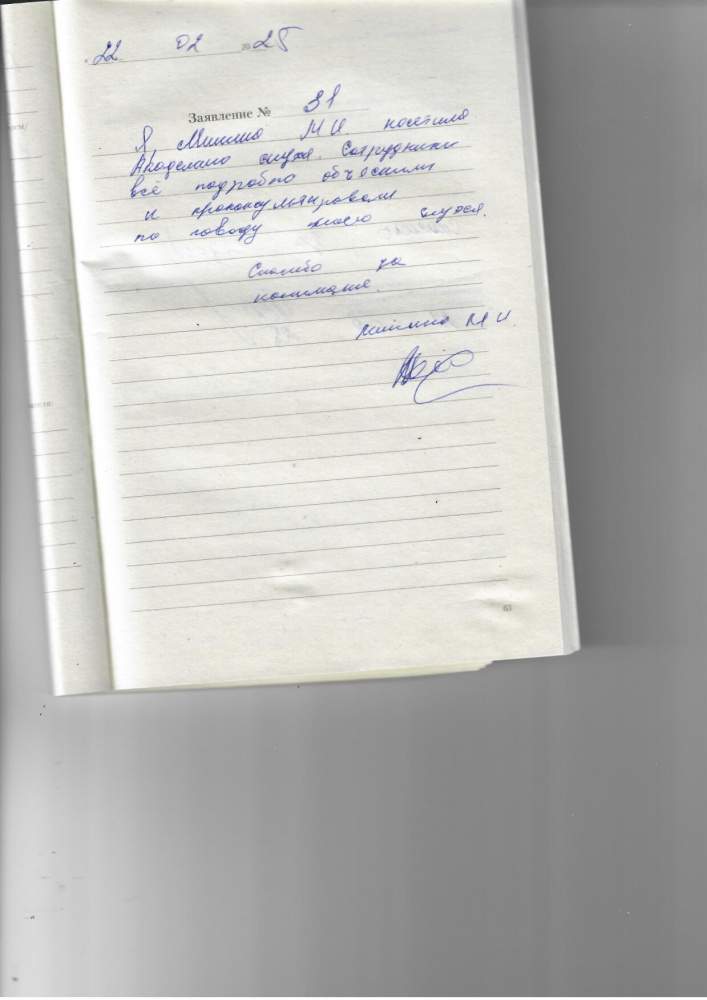 22 02 2025
Заявление № 31
Я Минина М И. посетила
Академию слуха. Сотрудники
всё подробно объяснили
и проконсультировали
по поводу моего слуха.
Спасибо за
понимание.
Минина М И.
61